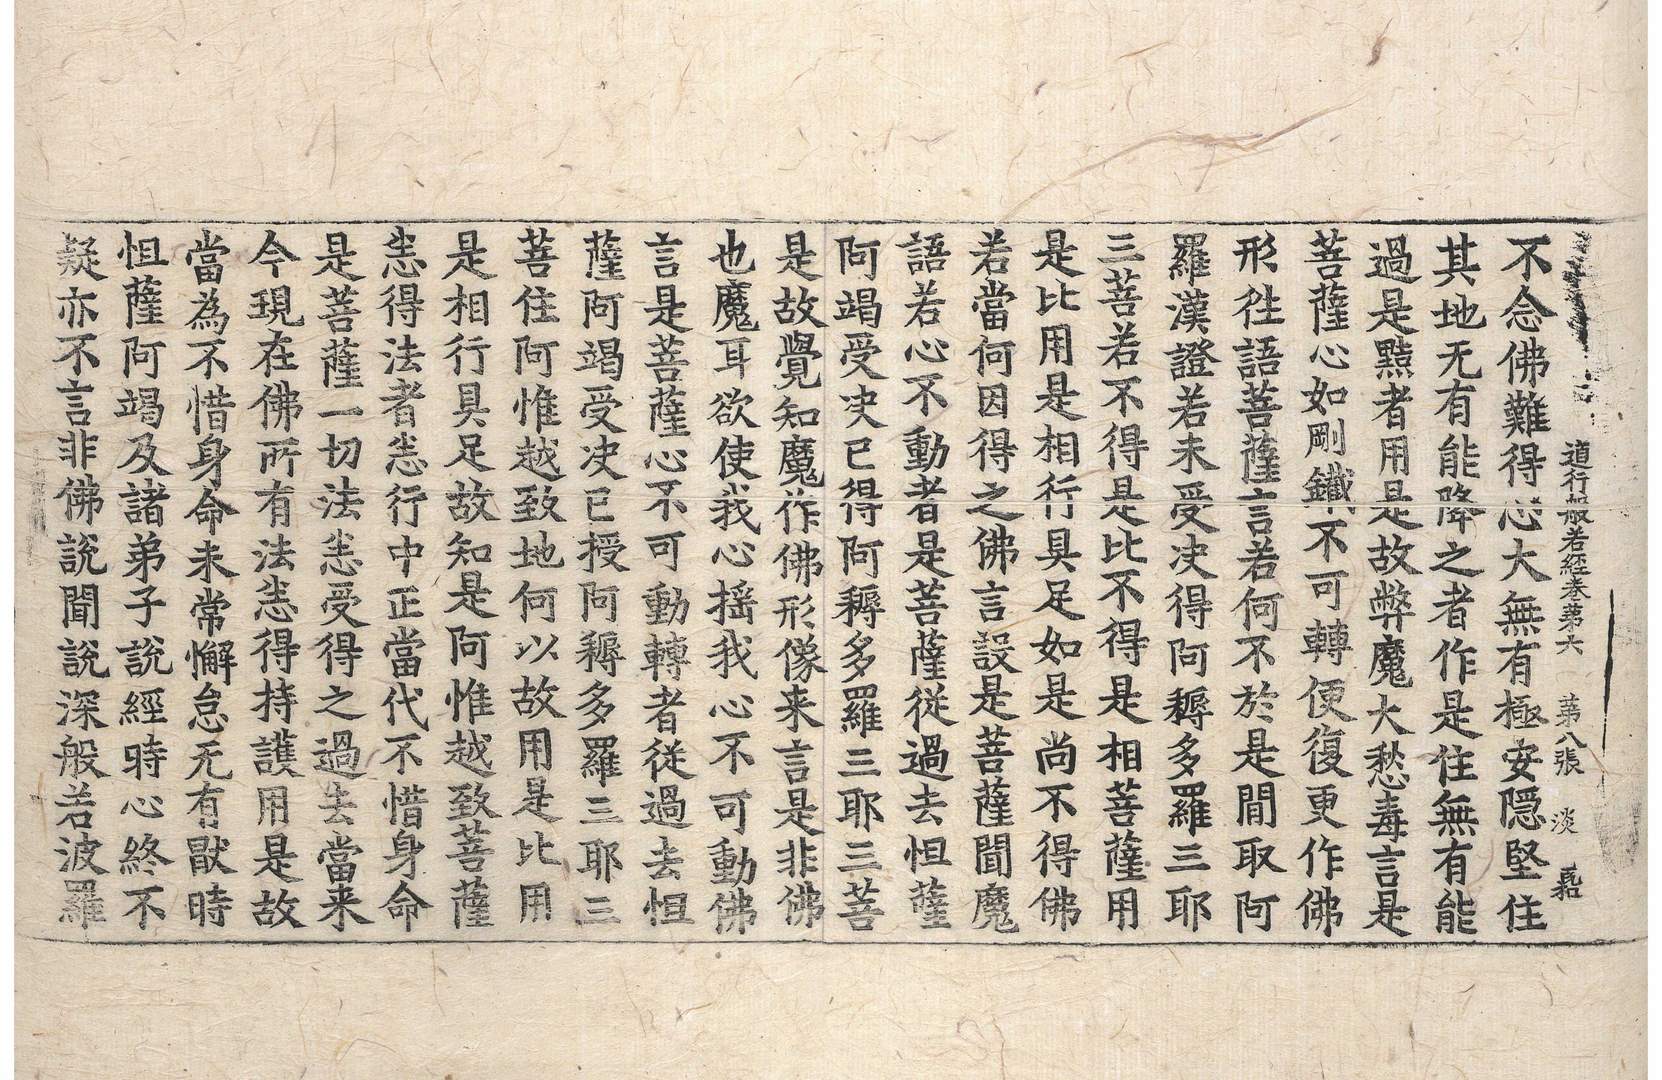 道行般若經卷第六 第八張 淡
不念佛難得心大無有極安隱堅住
其地无有能降之者作是住無有能
過是黠者用是故弊魔大愁毒言是
菩薩心如剛鐵不可轉便復更作佛
形徃語菩薩言若何不於是閒取阿
羅漢證若未受决得阿耨多羅三耶
三菩若不得是比不得是相菩薩用
是比用是相行具足如是尚不得佛
若當何因得之佛言設是菩薩聞魔
語若心不動者是菩薩從過去怛薩
阿竭受决已得阿耨多羅三耶三菩
是故覺知魔作佛形像来言是非佛
也魔耳欲使我心揺我心不可動佛
言是菩薩心不可動轉者從過去怛
薩阿竭受决已授阿耨多羅三耶三
菩住阿惟越致地何以故用是比用
是相行具足故知是阿惟越致菩薩
恙得法者恙行中正當代不惜身命
是菩薩一切法恙受得之過去當来
今現在佛所有法恙得持護用是故
當為不惜身命未常懈怠无有猒時
怛薩阿竭及諸弟子說經時心終不
疑亦不言非佛說聞說深般若波羅